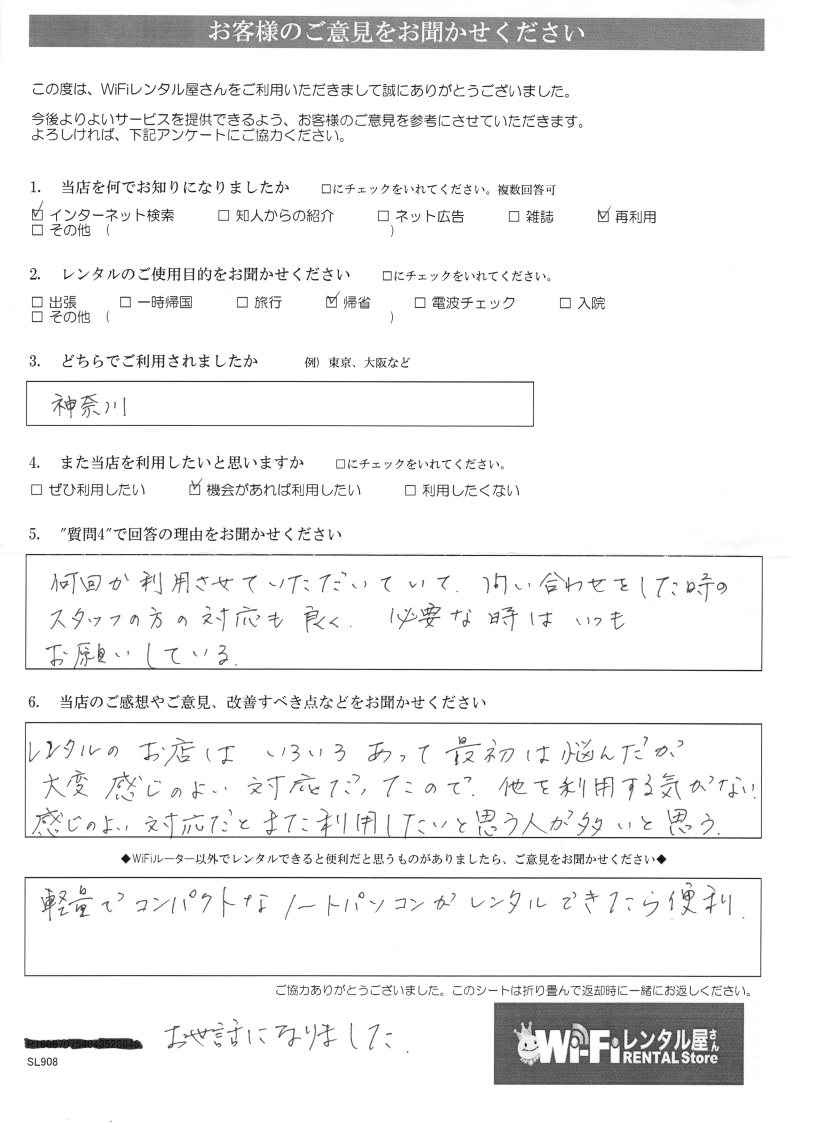 お客様のご意見をお聞かせください
この度は、WiFiレンタル屋さんをご利用いただきまして誠にありがとうございました。
今後よりよいサービスを提供できるよう、お客様のご意見を参考にさせていただきます。
よろしければ、下記アンケートにご協力ください。
1. 当店を何でお知りになりましたか □にチェックをいれてください。複数回答可
☑ インターネット検索 □ 知人からの紹介 □ ネット広告 □ 雑誌 ☑ 再利用
□ その他 ( )
2. レンタルのご使用目的をお聞かせください □にチェックをいれてください。
□ 出張 □ 一時帰国 □ 旅行 ☑ 帰省 □ 電波チェック □ 入院
□ その他 ( )
3. どちらでご利用されましたか 例）東京、大阪など
神奈川
4. また当店を利用したいと思いますか □にチェックをいれてください。
□ ぜひ利用したい ☑ 機会があれば利用したい □ 利用したくない
5. "質問4"で回答の理由をお聞かせください
何回か利用させていただいていて、問い合わせをした時の
スタッフの方の対応も良く、必要な時はいつも
お願いしている。
6. 当店のご感想やご意見、改善すべき点などをお聞かせください
レンタルのお店はいろいろあって最初は悩んだが、
大変感じのよい対応だったので、他を利用する気がない。
感じのよい対応だとまた利用したいと思う人が多いと思う。
◆WiFiルーター以外でレンタルできると便利だと思うものがありましたら、ご意見をお聞かせください◆
軽量でコンパクトなノートパソコンがレンタルできたら便利。
ご協力ありがとうございました。このシートは折り畳んで返却時に一緒にお返しください。
お世話になりました。
SL908
Wi-Fiレンタル屋さん
RENTAL Store